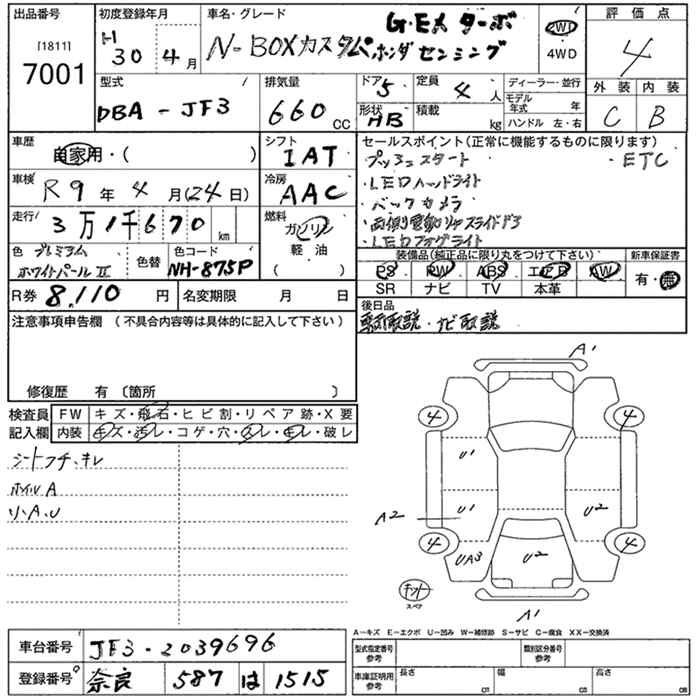 出品番号
[1811]
7001
初度登録年月
H
30 年 4 月
車名・グレード
G・EX ターボ
N-BOXカスタム ホンダセンシング
2WD
4WD
評価点
4
外装 内装
C B
型式
DBA - JF3
排気量
660 CC
ドア 5
形状 HB
定員 4 人
積載 kg
ディーラー・並行
モデル年式 年
ハンドル 左・右
車歴
自家用・( )
シフト
IAT
車検
R9 年 4 月(24日)
冷房
AAC
走行
3万1千670 km
燃料
ガソリン
軽油
( )
色 プレミアム
ホワイトパールⅡ
色替
色コード
NH-875P
R券 8,110 円
名変期限 月 日
セールスポイント(正常に機能するものに限ります)
・プッシュスタート ・ETC
・LEDヘッドライト
・バックカメラ
・両側電動リヤスライドドア
・LEDフォグライト
装備品(純正品に限り丸をつけて下さい) 新車保証書
PS PW ABS エアB AW 有・無
SR ナビ TV 本革
後日品
取説・ナビ取説
注意事項申告欄 (不具合内容等は具体的に記入して下さい)
修復歴 有〔箇所 〕
検査員
記入欄
FW キズ・飛石・ヒビ割・リペア跡・X要
内装 キズ・汚レ・コゲ・穴・スレ・キレ・破レ
シートフチ、キレ
ホイルA
リ、A、U
A1
4 4
U1
A2 U1 U2
4 4
UA3 U2
キット
スペア
A1
A-キズ E-エクボ U-凹み W-補修跡 S-サビ C-腐食 XX-交換済
車台番号 JF3-2039696
登録番号 奈良 587 は 1515
型式指定番号
参考
類別区分番号
参考
車庫証明用
参考
長さ cm
幅 cm
高さ cm